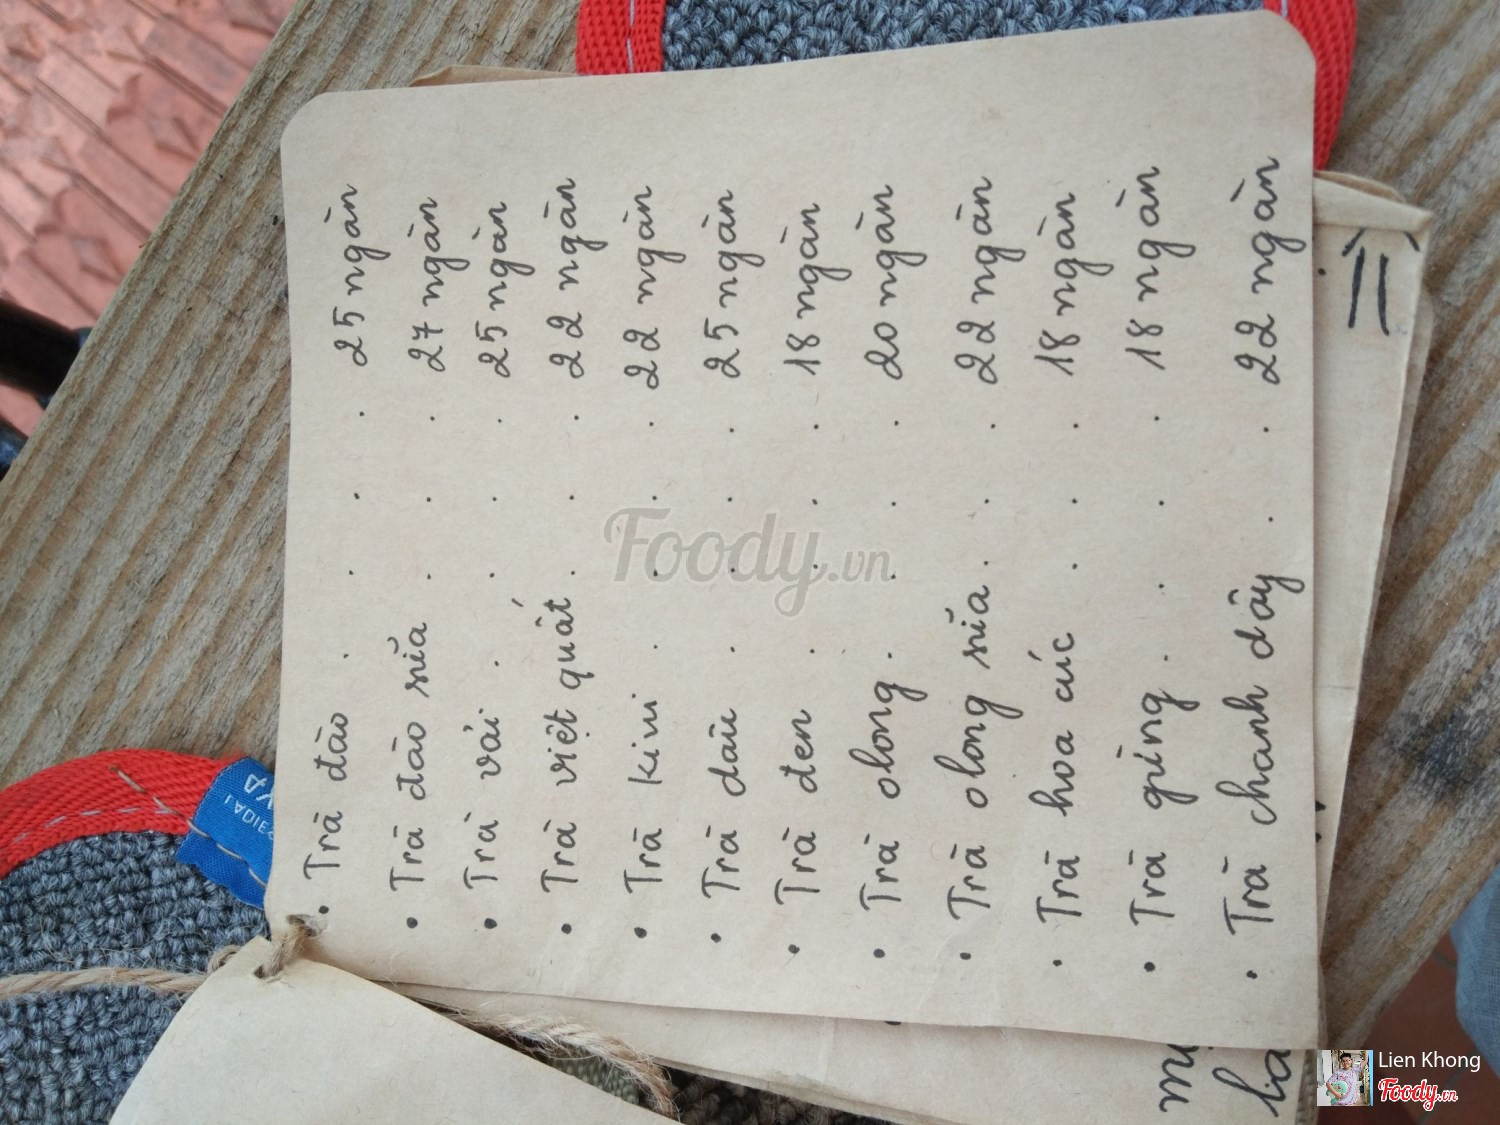 • Trà đào . . . . 25 ngàn
• Trà đào sữa . . . 27 ngàn
• Trà vải . . . . 25 ngàn
• Trà việt quất . . . 22 ngàn
• Trà kiwi . . . . 22 ngàn
• Trà dâu . . . . 25 ngàn
• Trà đen . . . . 18 ngàn
• Trà olong . . . . 20 ngàn
• Trà olong sữa . . . 22 ngàn
• Trà hoa cúc . . . 18 ngàn
• Trà gừng . . . . 18 ngàn
• Trà chanh dây . . 22 ngàn
Foody.vn
Lien Khong
Foody.vn